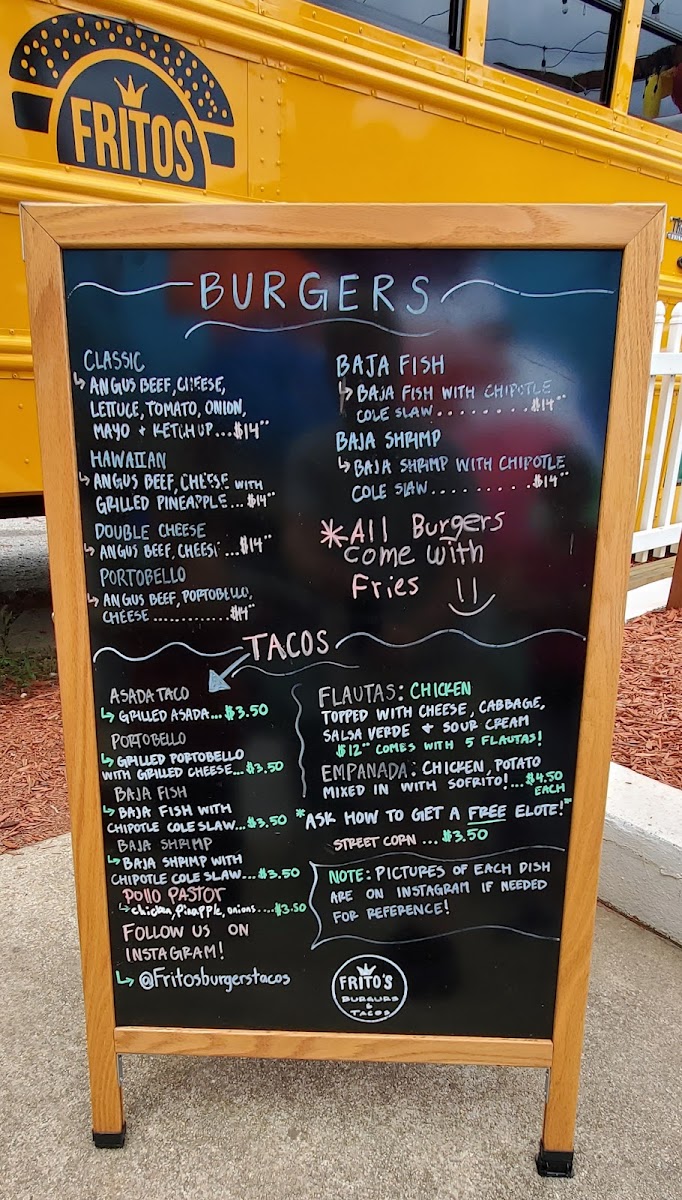 FRITOS
BURGERS
CLASSIC
↳ ANGUS BEEF, CHEESE,
LETTUCE, TOMATO, ONION,
MAYO + KETCHUP...$14⁰⁰
HAWAIIAN
↳ ANGUS BEEF, CHEESE WITH
GRILLED PINEAPPLE...$14⁰⁰
DOUBLE CHEESE
↳ ANGUS BEEF, CHEESE...$14⁰⁰
PORTOBELLO
↳ ANGUS BEEF, PORTOBELLO,
CHEESE............$14⁰⁰
BAJA FISH
↳ BAJA FISH WITH CHIPOTLE
COLE SLAW.........$14⁰⁰
BAJA SHRIMP
↳ BAJA SHRIMP WITH CHIPOTLE
COLE SLAW..........$14⁰⁰
*All Burgers
come with
Fries
TACOS
ASADA TACO
↳ GRILLED ASADA...$3.50
PORTOBELLO
↳ GRILLED PORTOBELLO
WITH GRILLED CHEESE...$3.50
BAJA FISH
↳ BAJA FISH WITH
CHIPOTLE COLE SLAW...$3.50
BAJA SHRIMP
↳ BAJA SHRIMP WITH
CHIPOTLE COLE SLAW...$3.50
Pollo PASTOR
↳ chicken, pineapple, onions....$3.50
FOLLOW US ON
INSTAGRAM!
↳ @Fritosburgerstacos
FLAUTAS: CHICKEN
TOPPED WITH CHEESE, CABBAGE,
SALSA VERDE + SOUR CREAM
$12⁰⁰ COMES WITH 5 FLAUTAS!
EMPANADA: CHICKEN, POTATO
MIXED IN WITH SOFRITO!...$4.50
EACH
*ASK HOW TO GET A FREE ELOTE!*
STREET CORN ...$3.50
NOTE: PICTURES OF EACH DISH
ARE ON INSTAGRAM IF NEEDED
FOR REFERENCE!
FRITO'S
BURGERS
&
TACOS